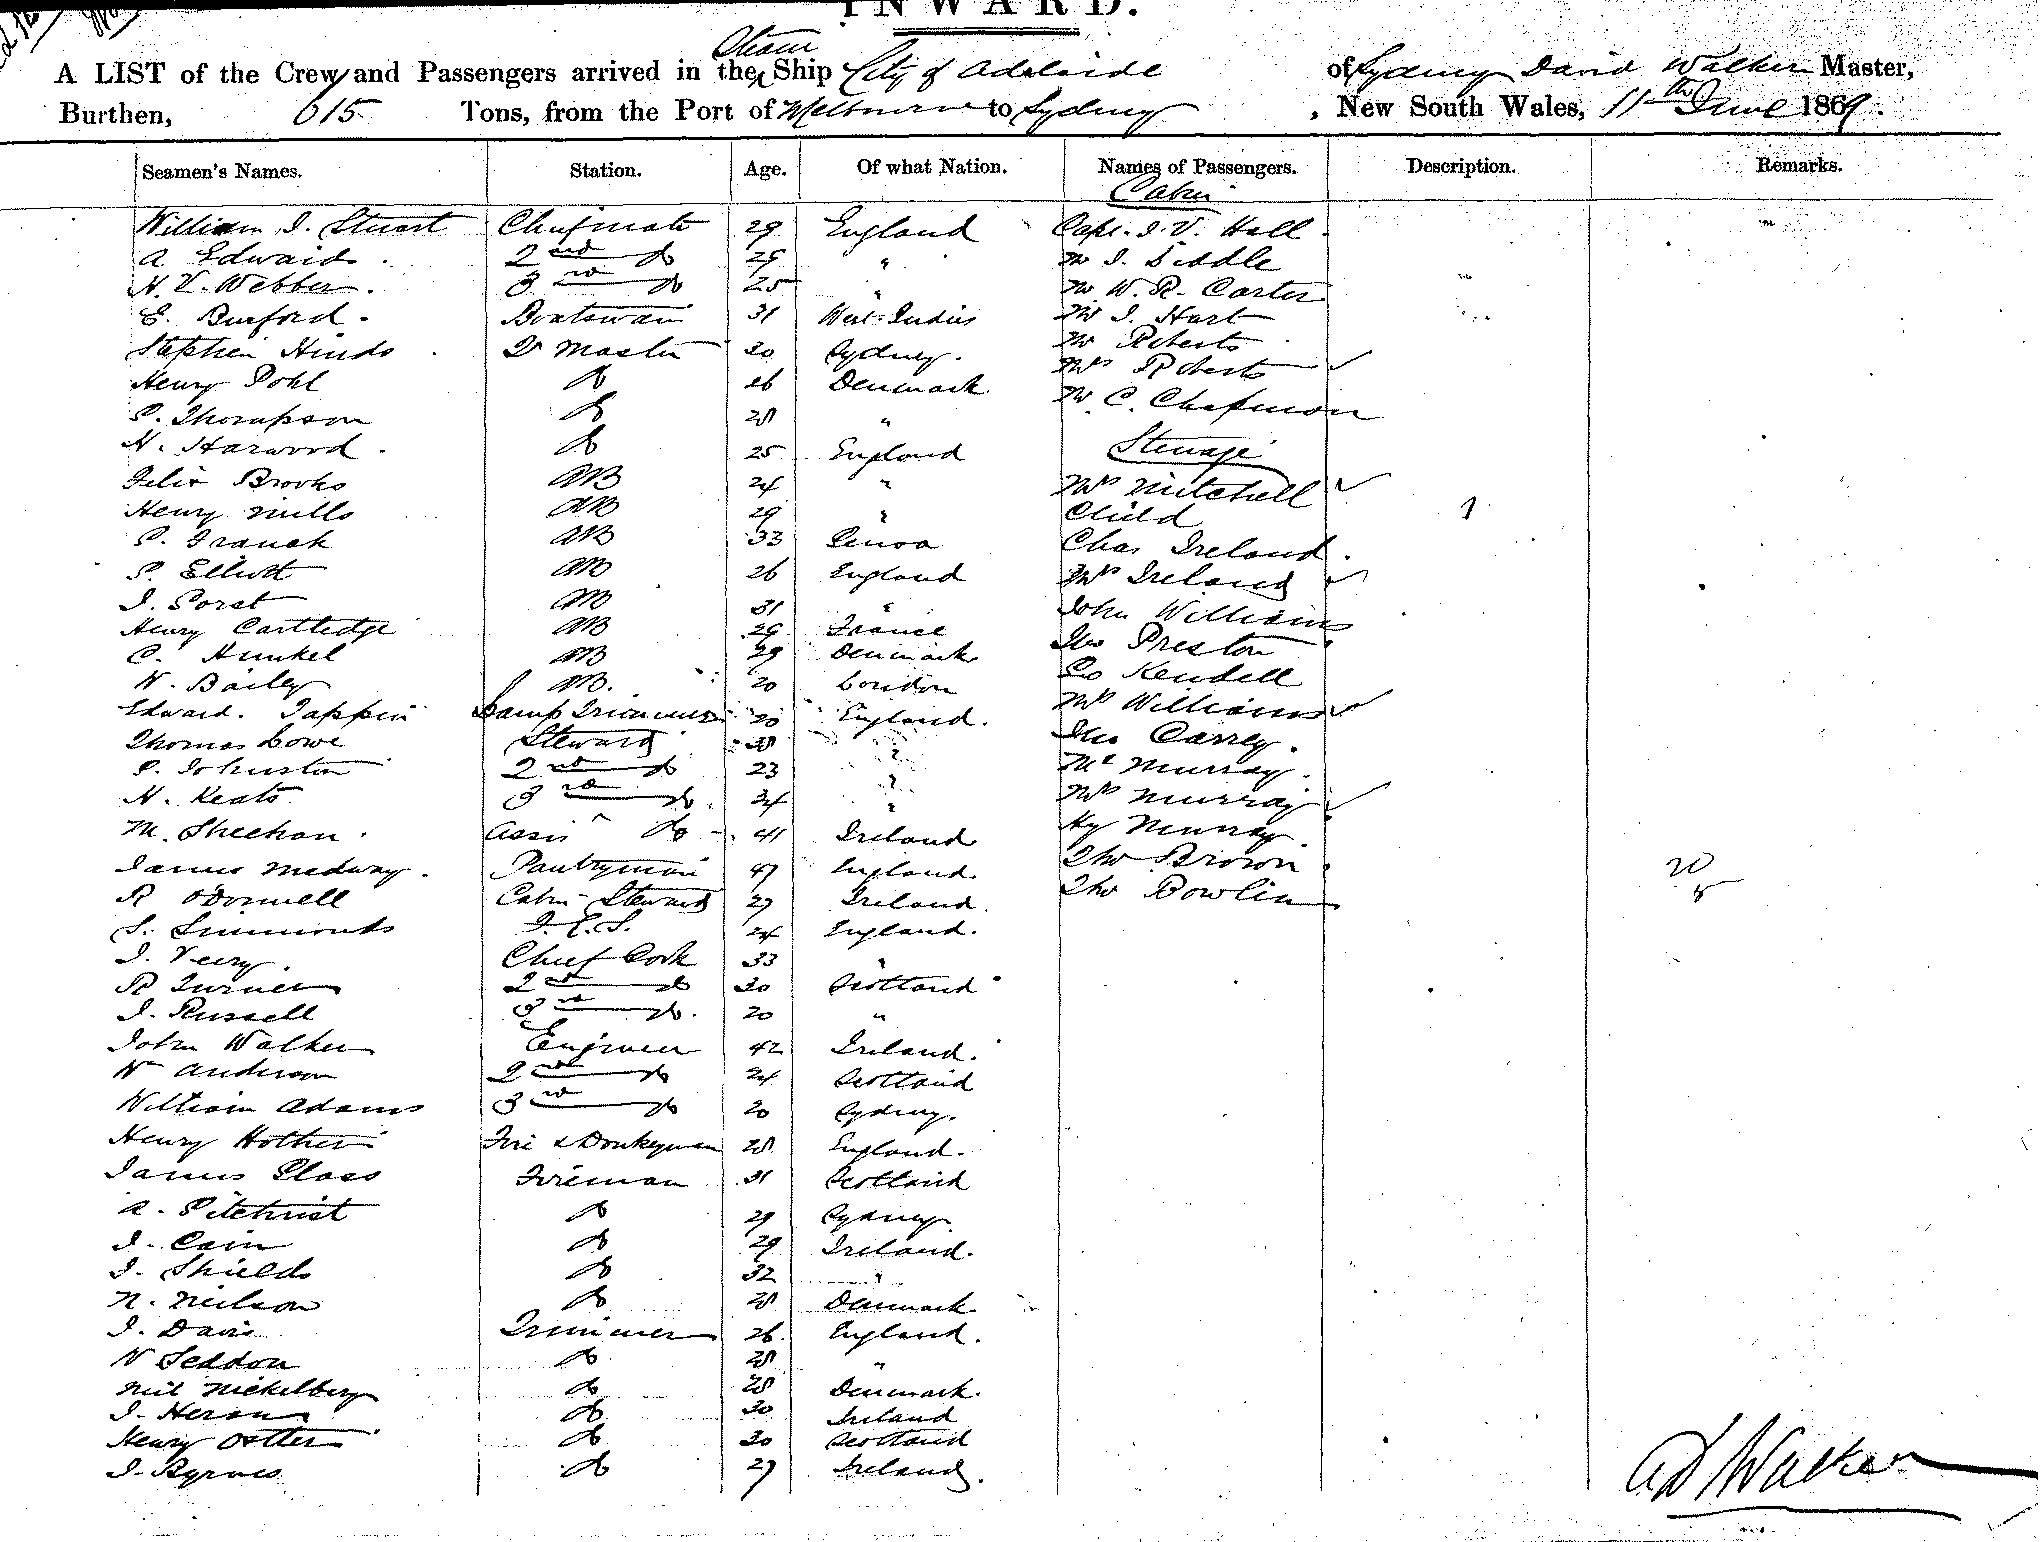 INWARD.
A LIST of the Crew and Passengers arrived in the Steam Ship City of Adelaide of Sydney David Walker Master,
Burthen, 615 Tons, from the Port of Melbourne to Sydney, New South Wales, 11th June 1869.
Seamen's Names. Station. Age. Of what Nation. Names of Passengers. Description. Remarks.
Cabin
William J. Stuart Chief mate 29 England Capt. J. V. Hall
A Edwards 2nd do 29 " Mr J. Siddle
H. V. Webber 3rd do 25 " Mr W. R. Carter
E. Burford Boatswain 31 West Indies Mr J. Hart
Stephen Hinds Qr Master 30 Sydney Mr Roberts
Henry Pohl do 26 Denmark Mrs Roberts
P. Thompson do 28 " Mr C. Chapman
H. Harwood do 25 England Steerage
Felix Brooks AB 24 " Mrs Mitchell
Henry Mills AB 29 " Child 1
P. Franck AB 33 Genoa Chas Ireland
P. Elliott AB 26 England Mrs Ireland
J. Porst AB 31 " John Williams
Henry Cartledge AB 29 France Preston
C. Hunkel AB 29 Denmark Geo Kendell
W. Bailey AB. 20 London Mrs Williams
Edward. Tappin Lamp Trimmer 20 England. Carrey.
Thomas Lowe Steward 38 " Mr Murray.
P. Johnston 2nd do 23 " Mrs Murray
H. Keats 3rd do. 34 " Hy Murray
M. Sheehan Assist do 41 Ireland Thos Brown
James Medway Pantryman 47 England Thos Bowlin 20
R ODonnell Cabin Steward 27 Ireland 8
S. Simmonds F.C.S. 24 England.
J. Veiry Chief Cook 33 "
R Turner 2nd do 30 Scotland
J. Russell 3rd do. 20 "
John Walker Engineer 42 Ireland.
W Anderson 2nd do 24 Scotland
William Adams 3rd do 20 Sydney.
Henry Hother Fire & Donkeyman 28 England.
James Glass Fireman 31 Scotland
A. Gilchrist do 29 Sydney
J. Cain do 29 Ireland.
J. Shields do 32 "
N. Neilson do 28 Denmark
J. Davis Trimmer 26 England.
W Seddon do 28 "
Neil Nickelberg do 28 Denmark.
J. Heron do 30 Ireland
Henry Ostler do 30 Scotland
J. Byrnes do 27 Ireland.
D Walker